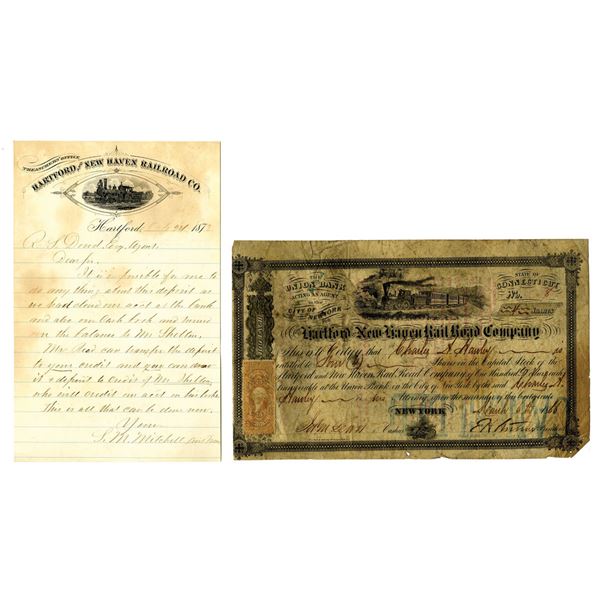 TREASURERS OFFICE
HARTFORD AND NEW HAVEN RAILROAD CO.
Hartford, 187
Esq. Agent
Dear Sir
It is impossible for me to
do any thing about this deposit as
we had closed our acct at the bank
and also our Cash book and
on the balance to Mr Shelton.
Mr Read can transfer the deposit
to your credit and you can draw
it & deposit to credit of Mr Shelton,
who will credit our acct on his books.
This is all that can be done now.
Yours
S. M. Mitchell
THE
UNION BANK
ACTING AS AGENT
CITY OF NEW YORK
STATE OF
CONNECTICUT
No.
SHARES
Hartford and New Haven Rail Road Company
This is to Certify that Charles S. Hawley is
entitled to Shares in the Capital Stock of the
Hartford and New Haven Rail Road Company of One Hundred Dollars each
transferable at the Union Bank in the City of New York by the said Charles S.
Hawley or his Attorney upon surrendering this certificate
NEW YORK March 1866
Cashier
President